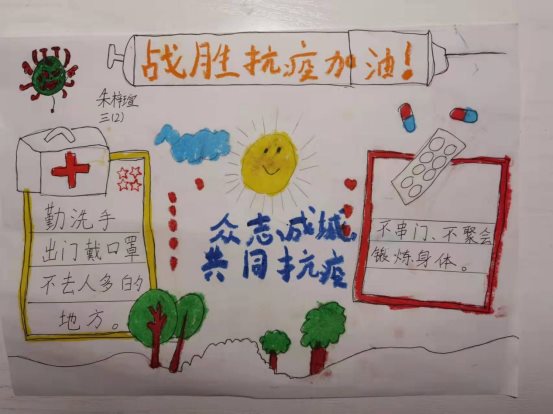 战胜抗疫加油！
朱梓瑄
三(2)
勤洗手
出门戴口罩
不去人多白勺
地方。
众志成城，
共同抗疫
不串门、不聚会
锻炼身体。